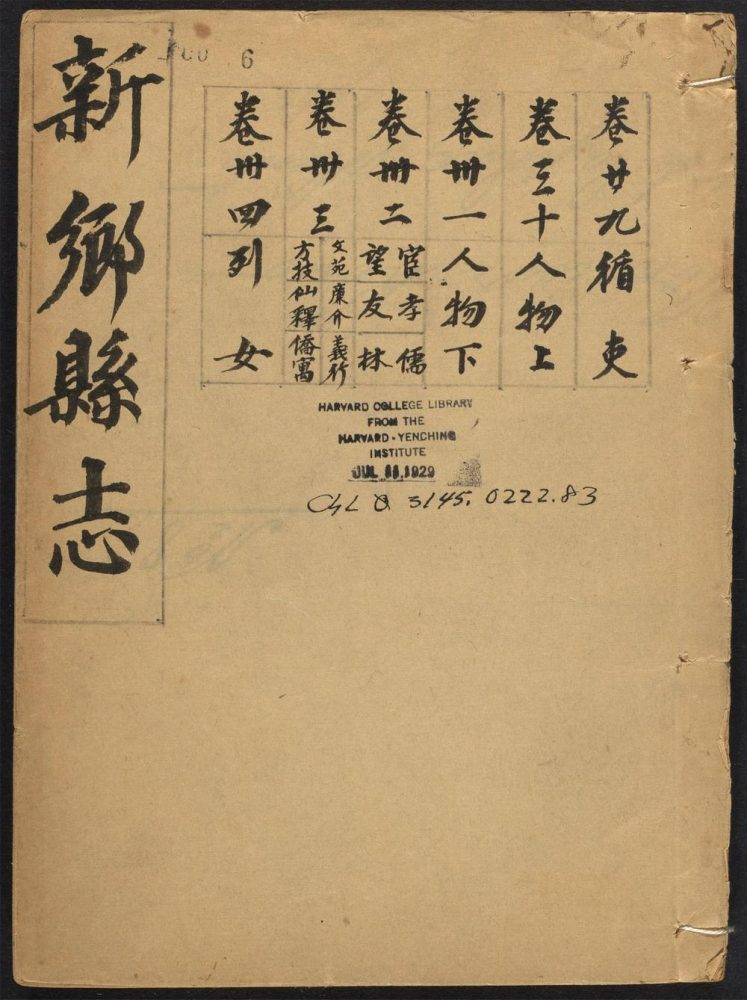 新鄉縣志
6
卷廿九循吏
卷三十人物上
卷卅一人物下
卷卅二
宦孝儒
望友林
卷卅三
文苑廉介義行
方技仙釋僑寓
卷卅四列女
HARVARD COLLEGE LIBRARY
FROM THE
HARVARD-YENCHING
INSTITUTE
JUL 1929
3145.0222.83